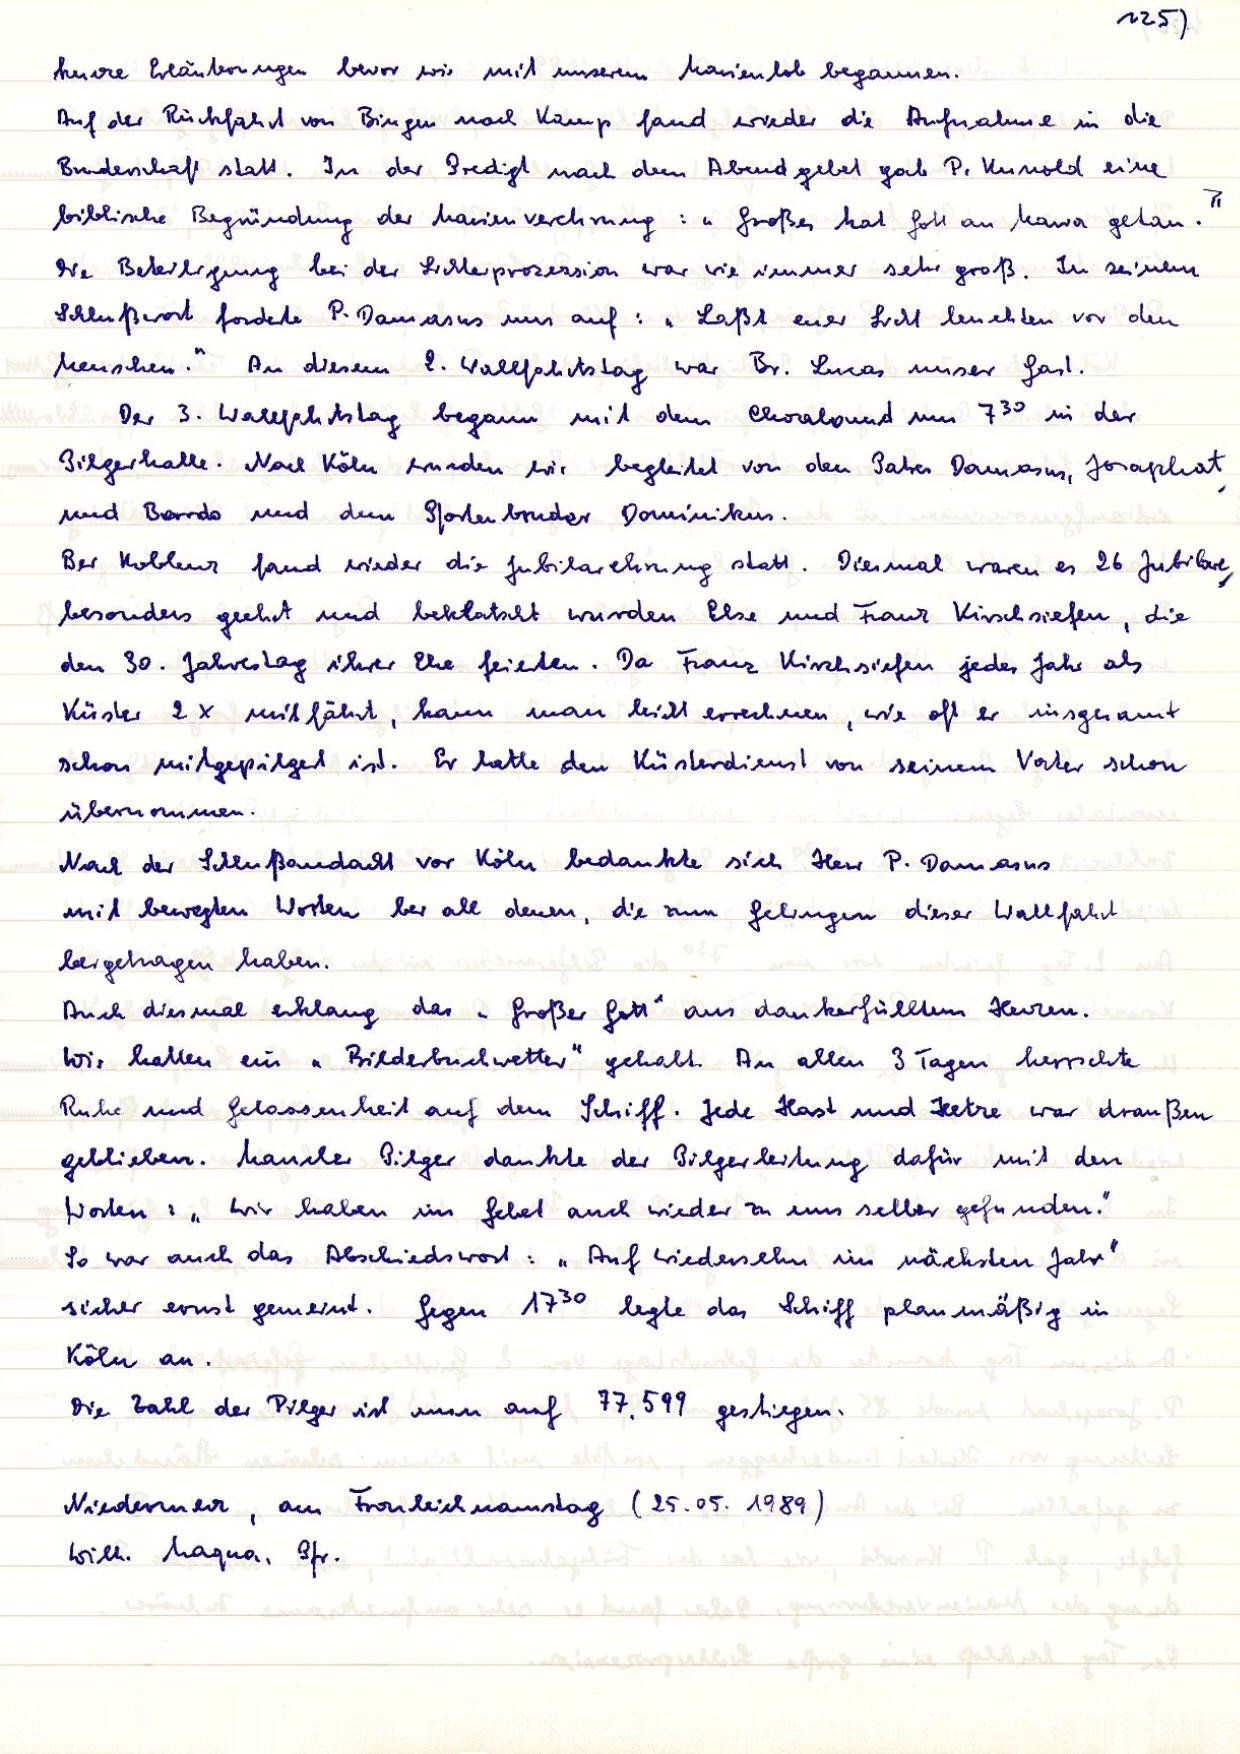 125)
kurze Erläuterungen bevor wir mit unserem Marienlob begannen.
Auf der Rückfahrt von Bingen nach Kamp fand wieder die Aufnahme in die
Bruderschaft statt. In der Predigt nach dem Abendgebet gab P. Kunold eine
biblische Begründung der Marienverehrung : „Großes hat Gott an Maria getan."
Die Beteiligung bei der Lichterprozession war wie immer sehr groß. In seinem
Schlußwort forderte P. Damasus uns auf : „Laßt euer Licht leuchten vor den
Menschen." An diesem 2. Wallfahrtstag war Br. Lucas unser Gast.
Der 3. Wallfahrtstag begann mit dem Choralamt um 7³⁰ in der
Pilgerhalle. Nach Köln wurden wir begleitet von den Patres Damasus, Josaphat,
und Bardo und dem Pfortenbruder Dominikus.
Bei Koblenz fand wieder die Jubilarehrung statt. Diesmal waren es 26 Jubilare,
besonders geehrt und beklatscht wurden Else und Franz Kirschsiefen, die
den 30. Jahrestag ihrer Ehe feierten. Da Franz Kirschsiefen jedes Jahr als
Küster 2 x mitfährt, kann man leicht errechnen, wie oft er insgesamt
schon mitgepilgert ist. Er hatte den Küsterdienst von seinem Vater schon
übernommen.
Nach der Schlußandacht vor Köln bedankte sich Herr P. Damasus
mit bewegten Worten bei all denen, die zum Gelingen dieser Wallfahrt
beigetragen haben.
Auch diesmal erklang das „Großer Gott" aus dankerfülltem Herzen.
Wir hatten ein „Bilderbuchwetter" gehabt. An allen 3 Tagen herrschte
Ruhe und Gelassenheit auf dem Schiff. Jede Hast und Hetze war draußen
geblieben. Mancher Pilger dankte der Pilgerleitung dafür mit den
Worten : „Wir haben im Gebet auch wieder zu uns selber gefunden."
So war auch das Abschiedswort : „Auf Wiedersehn im nächsten Jahr"
sicher ernst gemeint. Gegen 17³⁰ legte das Schiff planmäßig in
Köln an.
Die Zahl der Pilger ist nun auf 77.599 gestiegen.
Niedermerz, am Fronleichnamstag (25.05.1989)
Wilh. Maqua, Pfr.